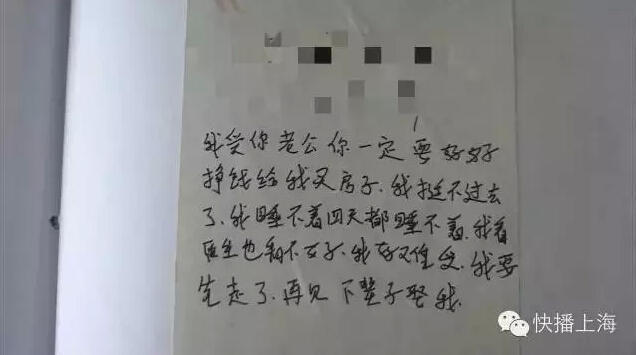 我爱你老公你一定要好好
挣钱给我买房子.我挺不过去
了.我睡不着四天都睡不着.我看
医生也不好.我好难受.我要
先走了.再见 下辈子娶我.
快播上海